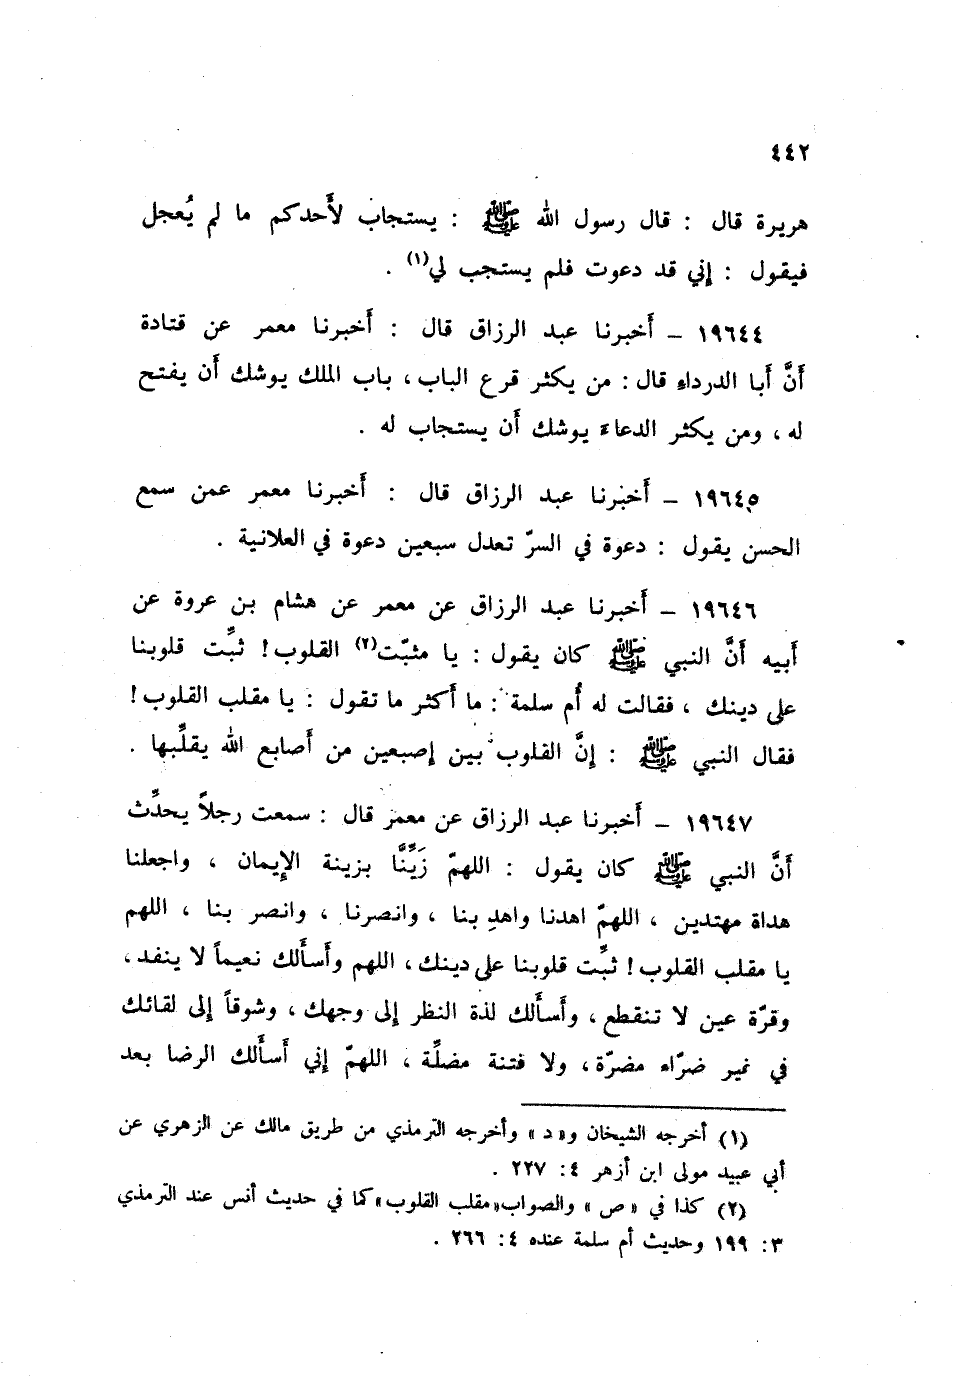 ٤٤٢
هريرة قال : قال رسول الله ﷺ : يستجاب لأَحدكم ما لم يُعجل
فيقول : إني قد دعوت فلم يستجب لي(١) .
١٩٦٤٤ – أَخبرنا عبد الرزاق قال : أَخبرنا معمر عن قتادة
أَنَّ أَبا الدرداء قال : من يكثر قرع الباب ، باب الملك يوشك أَن يفتح
له ، ومن يكثر الدعاءَ يوشك أَن يستجاب له .
١٩٦٤٥ – أَخبرنا عبد الرزاق قال : أَخبرنا معمر عمن سمع
الحسن يقول : دعوة في السرّ تعدل سبعين دعوة في العلانية .
١٩٦٤٦ – أَخبرنا عبد الرزاق عن معمر عن هشام بن عروة عن
أَبيه أَنَّ النبي ﷺ كان يقول : يا مثبّت(٢) القلوب! ثبِّت قلوبنا
على دينك ، فقالت له أُم سلمة : ما أَكثر ما تقول : يا مقلب القلوب!
فقال النبي ﷺ : إِنَّ القلوب بين إصبعين من أَصابع الله يقلِّبها .
١٩٦٤٧ – أَخبرنا عبد الرزاق عن معمر قال : سمعت رجلاً يحدِّث
أَنَّ النبي ﷺ كان يقول : اللهمّ زَيِّنَّا بزينة الإِيمان ، واجعلنا
هداة مهتدين ، اللهمّ اهدنا واهدِ بنا ، وانصرنا ، وانصر بنا ، اللهم
يا مقلب القلوب! ثبِّت قلوبنا على دينك ، اللهم وأَسأَلك نعيماً لا ينفد ،
وقرّة عين لا تنقطع ، وأَسأَلك لذة النظر إلى وجهك ، وشوقاً إلى لقائك
في غير ضرّاء مضرّة ، ولا فتنة مضلِّة ، اللهمّ إني أَسأَلك الرضا بعد
(١) أخرجه الشيخان و«د» وأخرجه الترمذي من طريق مالك عن الزهري عن
أبي عبيد مولى ابن أزهر ٤: ٢٢٧ .
(٢) كذا في «ص» والصواب«مقلب القلوب»كما في حديث أنس عند الترمذي
٣: ١٩٩ وحديث أم سلمة عنده ٤: ٢٦٦ .